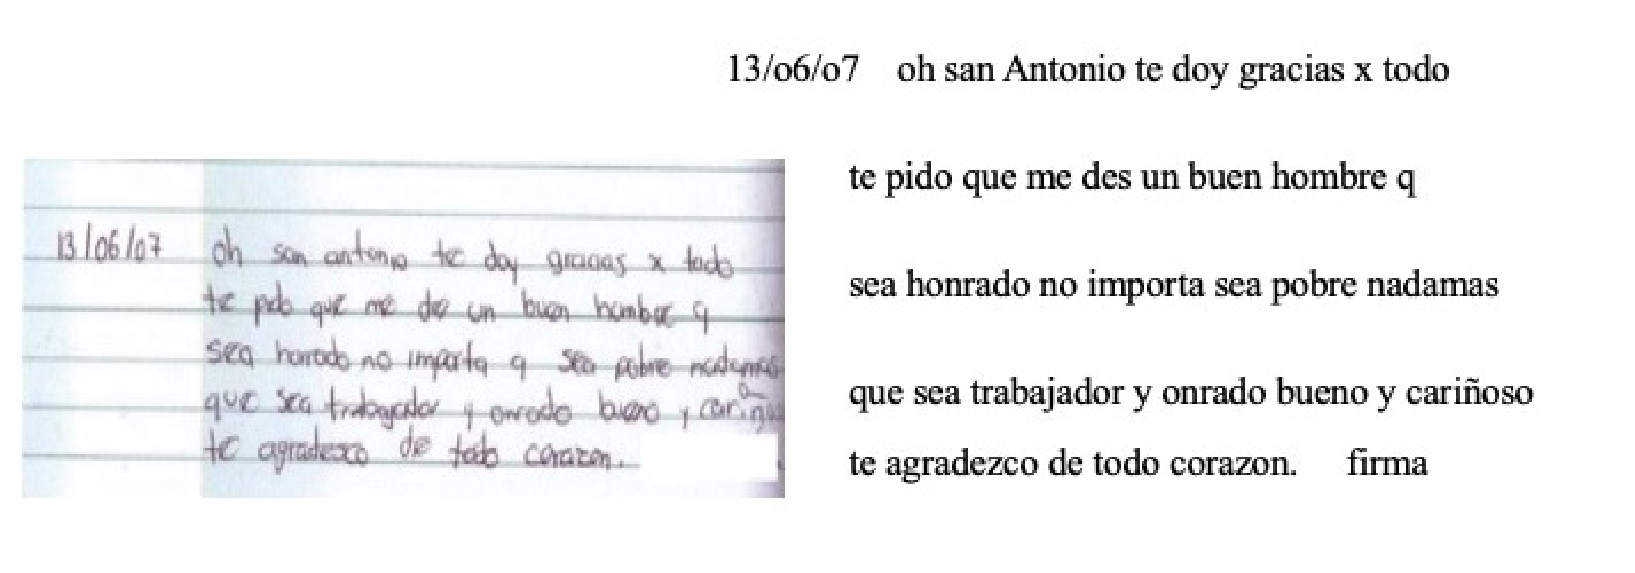 13/o6/o7 oh san Antonio te doy gracias x todo
te pido que me des un buen hombre q
sea honrado no importa sea pobre nadamas
que sea trabajador y onrado bueno y cariñoso
te agradezco de todo corazon. firma
13/06/07 oh san antonio te doy gracias x todo
te pido que me de un buen hombre q
sea honrado no importa q sea pobre nadamas
que sea trabajador y onrado bueno y
te agradezco de todo corazon.